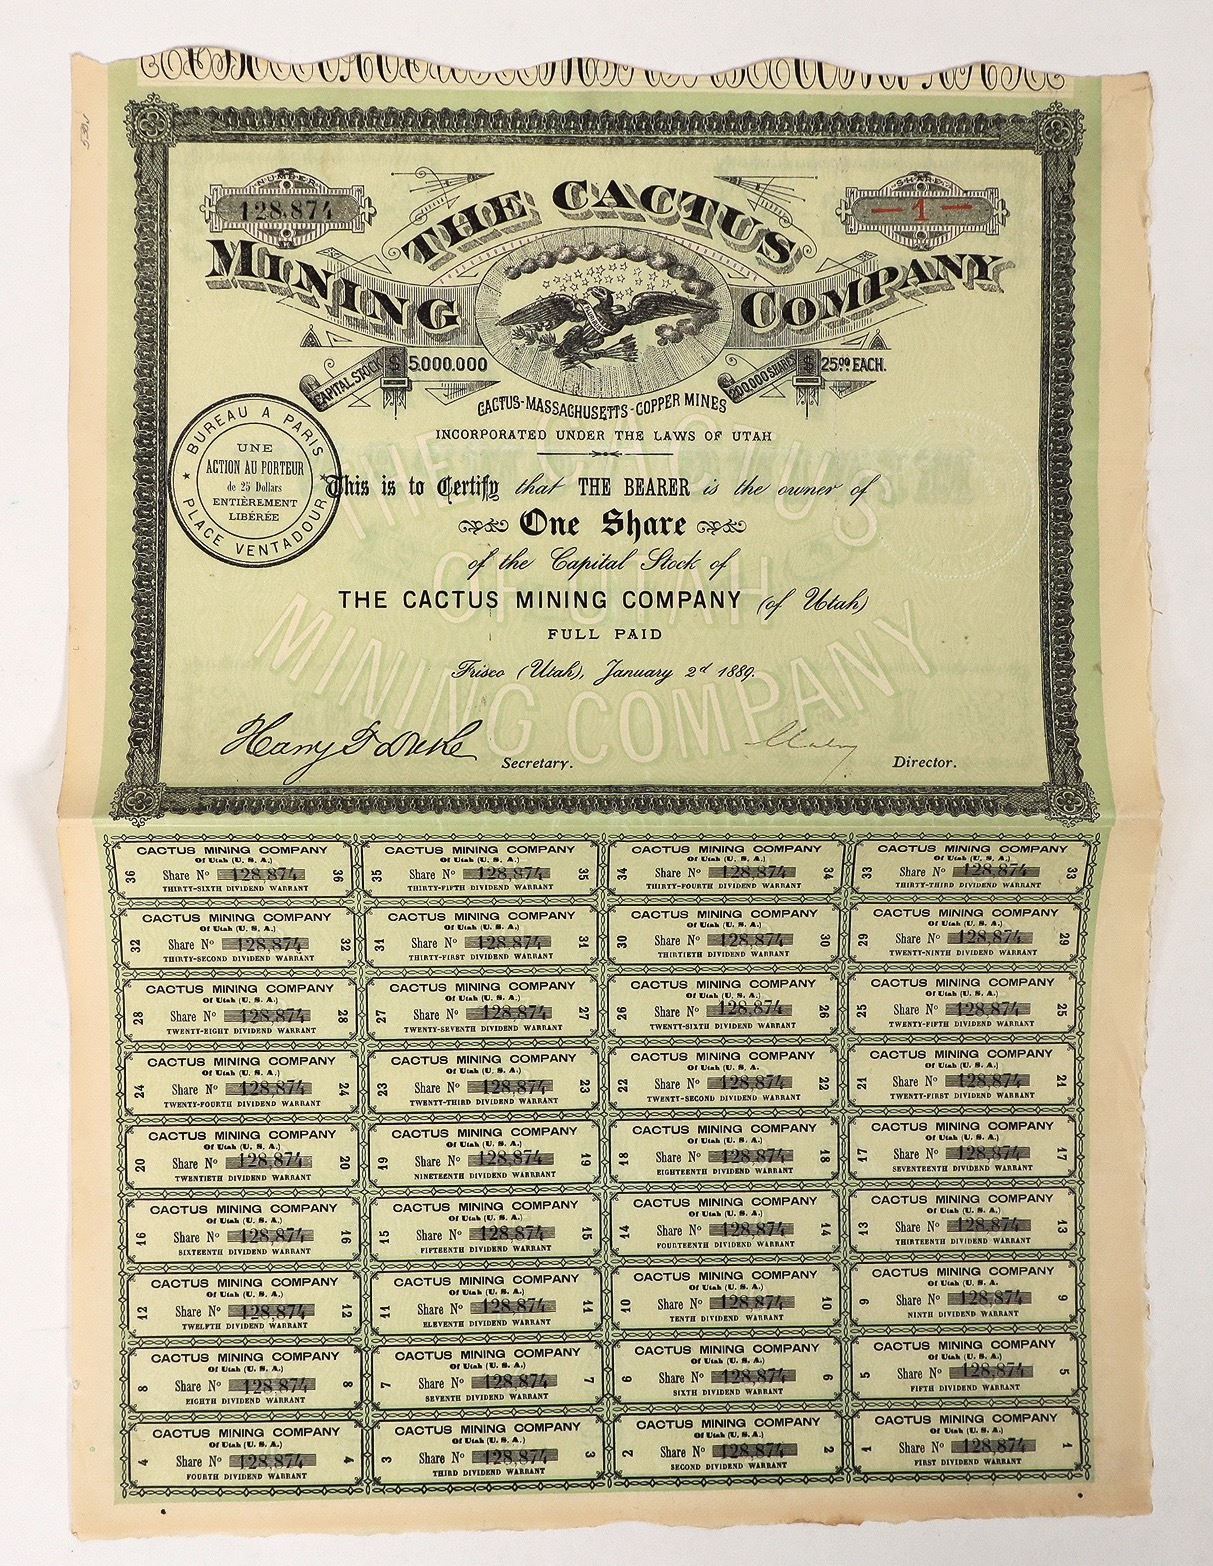 NUMBER
128.874
SHARE
— 1 —
THE CACTUS
MINING COMPANY
CAPITAL STOCK $ 5.000.000
200.000 SHARES $ 25.00 EACH.
CACTUS-MASSACHUSETTS-COPPER MINES
INCORPORATED UNDER THE LAWS OF UTAH
BUREAU A PARIS
UNE
ACTION AU PORTEUR
de 25 Dollars
ENTIÈREMENT
LIBÉRÉE
★ PLACE VENTADOUR ★
This is to Certify that THE BEARER is the owner of
One Share
of the Capital Stock of
THE CACTUS MINING COMPANY (of Utah)
FULL PAID
Frisco (Utah), January 2d 1889.
Secretary.
Director.
THE CACTUS
OF UTAH
MINING COMPANY
CACTUS MINING COMPANY
Of Utah (U. S. A.)
36 Share No 128,874 36
THIRTY-SIXTH DIVIDEND WARRANT
CACTUS MINING COMPANY
Of Utah (U. S. A.)
35 Share No 128,874 35
THIRTY-FIFTH DIVIDEND WARRANT
CACTUS MINING COMPANY
Of Utah (U. S. A.)
34 Share No 128,874 34
THIRTY-FOURTH DIVIDEND WARRANT
CACTUS MINING COMPANY
Of Utah (U. S. A.)
33 Share No 128,874 33
THIRTY-THIRD DIVIDEND WARRANT
CACTUS MINING COMPANY
Of Utah (U. S. A.)
32 Share No 128,874 32
THIRTY-SECOND DIVIDEND WARRANT
CACTUS MINING COMPANY
Of Utah (U. S. A.)
31 Share No 128,874 31
THIRTY-FIRST DIVIDEND WARRANT
CACTUS MINING COMPANY
Of Utah (U. S. A.)
30 Share No 128,874 30
THIRTIETH DIVIDEND WARRANT
CACTUS MINING COMPANY
Of Utah (U. S. A.)
29 Share No 128,874 29
TWENTY-NINTH DIVIDEND WARRANT
CACTUS MINING COMPANY
Of Utah (U. S. A.)
28 Share No 128,874 28
TWENTY-EIGHT DIVIDEND WARRANT
CACTUS MINING COMPANY
Of Utah (U. S. A.)
27 Share No 128,874 27
TWENTY-SEVENTH DIVIDEND WARRANT
CACTUS MINING COMPANY
Of Utah (U. S. A.)
26 Share No 128,874 26
TWENTY-SIXTH DIVIDEND WARRANT
CACTUS MINING COMPANY
Of Utah (U. S. A.)
25 Share No 128,874 25
TWENTY-FIFTH DIVIDEND WARRANT
CACTUS MINING COMPANY
Of Utah (U. S. A.)
24 Share No 128,874 24
TWENTY-FOURTH DIVIDEND WARRANT
CACTUS MINING COMPANY
Of Utah (U. S. A.)
23 Share No 128,874 23
TWENTY-THIRD DIVIDEND WARRANT
CACTUS MINING COMPANY
Of Utah (U. S. A.
22 Share No 128,874 22
TWENTY-SECOND DIVIDEND WARRANT
CACTUS MINING COMPANY
Of Utah (U. S. A.)
21 Share No 128,874 21
TWENTY-FIRST DIVIDEND WARRANT
CACTUS MINING COMPANY
Of Utah (U. S. A.)
20 Share No 128,874 20
TWENTIETH DIVIDEND WARRANT
CACTUS MINING COMPANY
Of Utah (U. S. A.)
19 Share No 128,874 19
NINETEENTH DIVIDEND WARRANT
CACTUS MINING COMPANY
Of Utah (U. S. A.)
18 Share No 128,874 18
EIGHTEENTH DIVIDEND WARRANT
CACTUS MINING COMPANY
Of Utah (U. S. A.)
17 Share No 128,874 17
SEVENTEENTH DIVIDEND WARRANT
CACTUS MINING COMPANY
Of Utah (U. S. A.)
16 Share No 128,874 16
SIXTEENTH DIVIDEND WARRANT
CACTUS MINING COMPANY
Of Utah (U. S. A.)
15 Share No 128,874 15
FIFTEENTH DIVIDEND WARRANT
CACTUS MINING COMPANY
Of Utah (U. S. A.)
14 Share No 128,874 14
FOURTEENTH DIVIDEND WARRANT
CACTUS MINING COMPANY
Of Utah (U. S. A.)
13 Share No 128,874 13
THIRTEENTH DIVIDEND WARRANT
CACTUS MINING COMPANY
Of Utah (U. S. A.)
12 Share No 128,874 12
TWELFTH DIVIDEND WARRANT
CACTUS MINING COMPANY
Of Utah (U. S. A.)
11 Share No 128,874 11
ELEVENTH DIVIDEND WARRANT
CACTUS MINING COMPANY
Of Utah (U. S. A.)
10 Share No 128,874 10
TENTH DIVIDEND WARRANT
CACTUS MINING COMPANY
Of Utah (U. S. A.
9 Share No 128,874 9
NINTH DIVIDEND WARRANT
CACTUS MINING COMPANY
Of Utah (U. S. A.)
8 Share No 128,874 8
EIGHTH DIVIDEND WARRANT
CACTUS MINING COMPANY
Of Utah (U. S. A.)
7 Share No 128,874 7
SEVENTH DIVIDEND WARRANT
CACTUS MINING COMPANY
Of Utah (U. S. A.)
6 Share No 128,874 6
SIXTH DIVIDEND WARRANT
CACTUS MINING COMPANY
Of Utah (U. S. A.)
5 Share No 128,874 5
FIFTH DIVIDEND WARRANT
CACTUS MINING COMPANY
Of Utah (U. S. A.)
4 Share No 128,874 4
FOURTH DIVIDEND WARRANT
CACTUS MINING COMPANY
Of Utah (U. S. A.)
3 Share No 128,874 3
THIRD DIVIDEND WARRANT
CACTUS MINING COMPANY
Of Utah (U. S. A.)
2 Share No 128,874 2
SECOND DIVIDEND WARRANT
CACTUS MINING COMPANY
Of Utah (U. S. A.)
1 Share No 128,874 1
FIRST DIVIDEND WARRANT